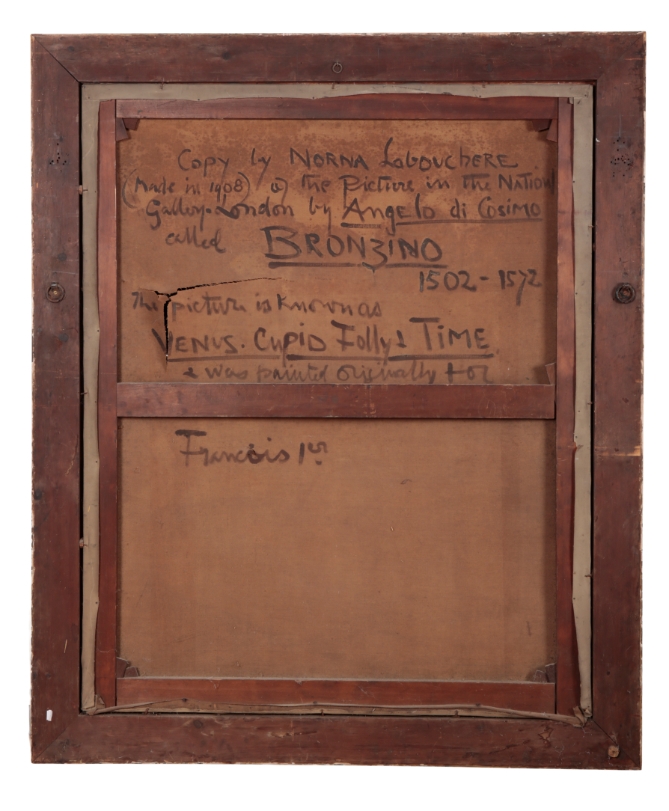 Copy by NORNA Labouchere
(Made in 1908) of the Picture in the NATION
Gallery. London by Angelo di Cosimo
called BRONZINO
1502 - 1572
The picture is known as
VENUS. CUPID Folly & TIME
& was painted originally for
Francois 1er